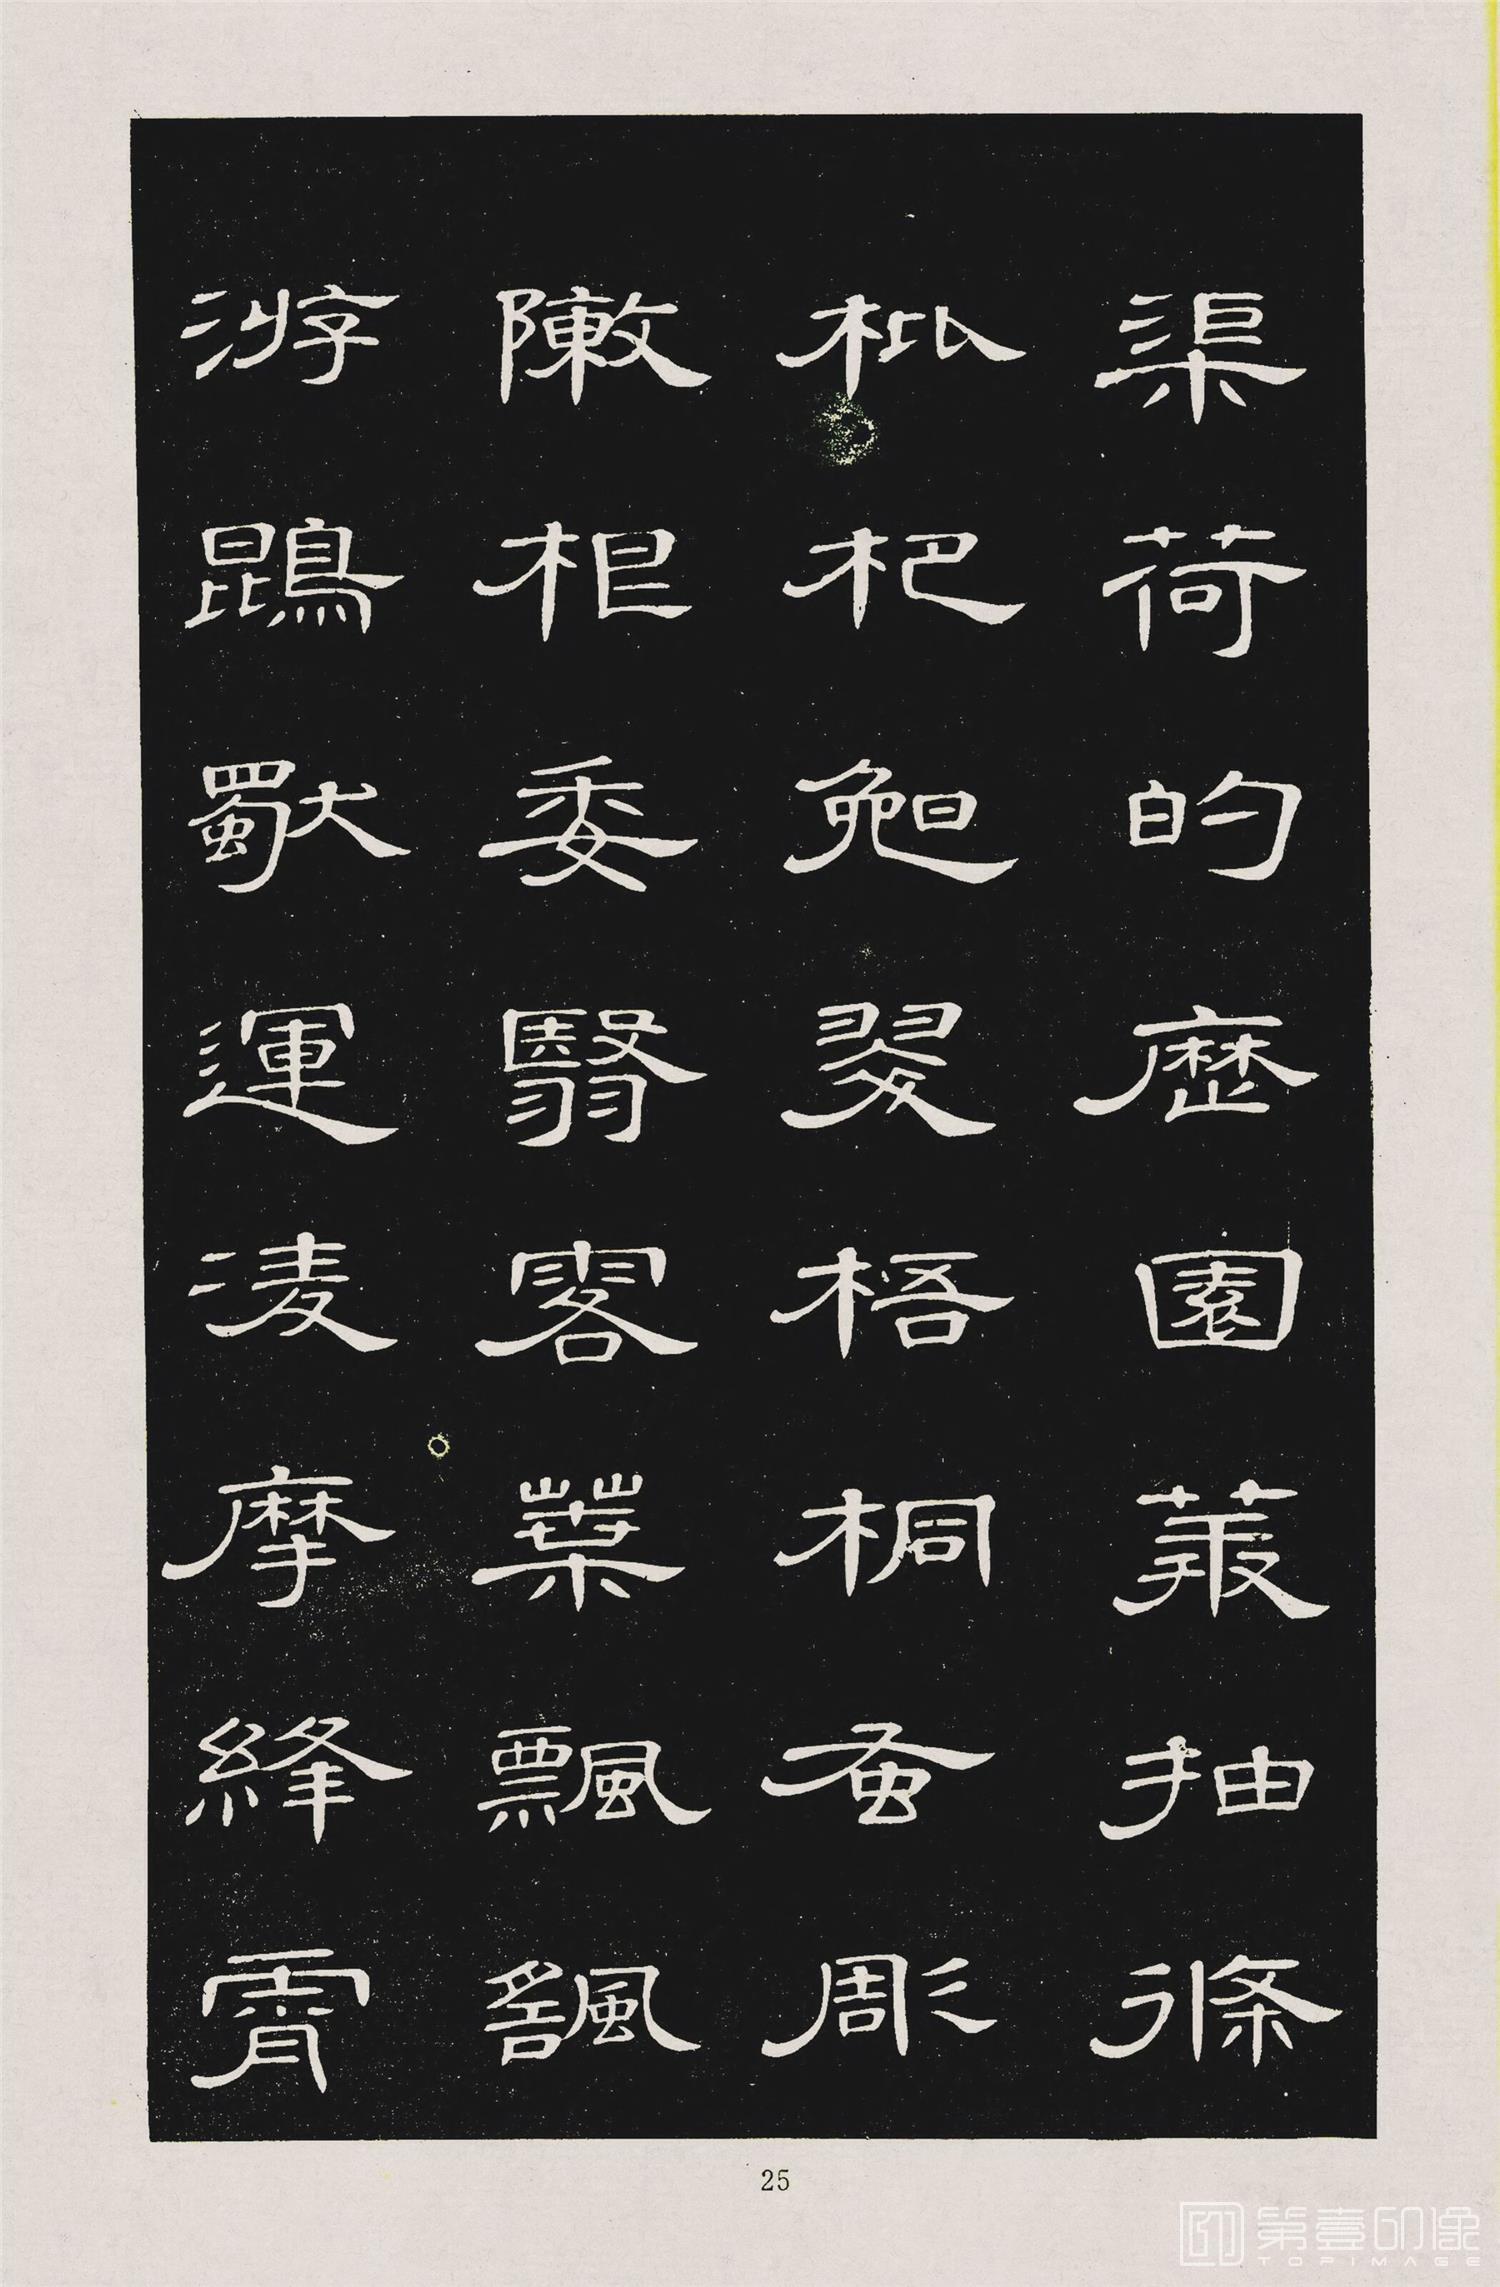 渠荷的歷園叢抽條
枇杷晚翠梧桐蚤彫
敶根委翳落葉飄颻
游鵾獨運凌摩絳霄
25
第壹印像
TOPIMAGE